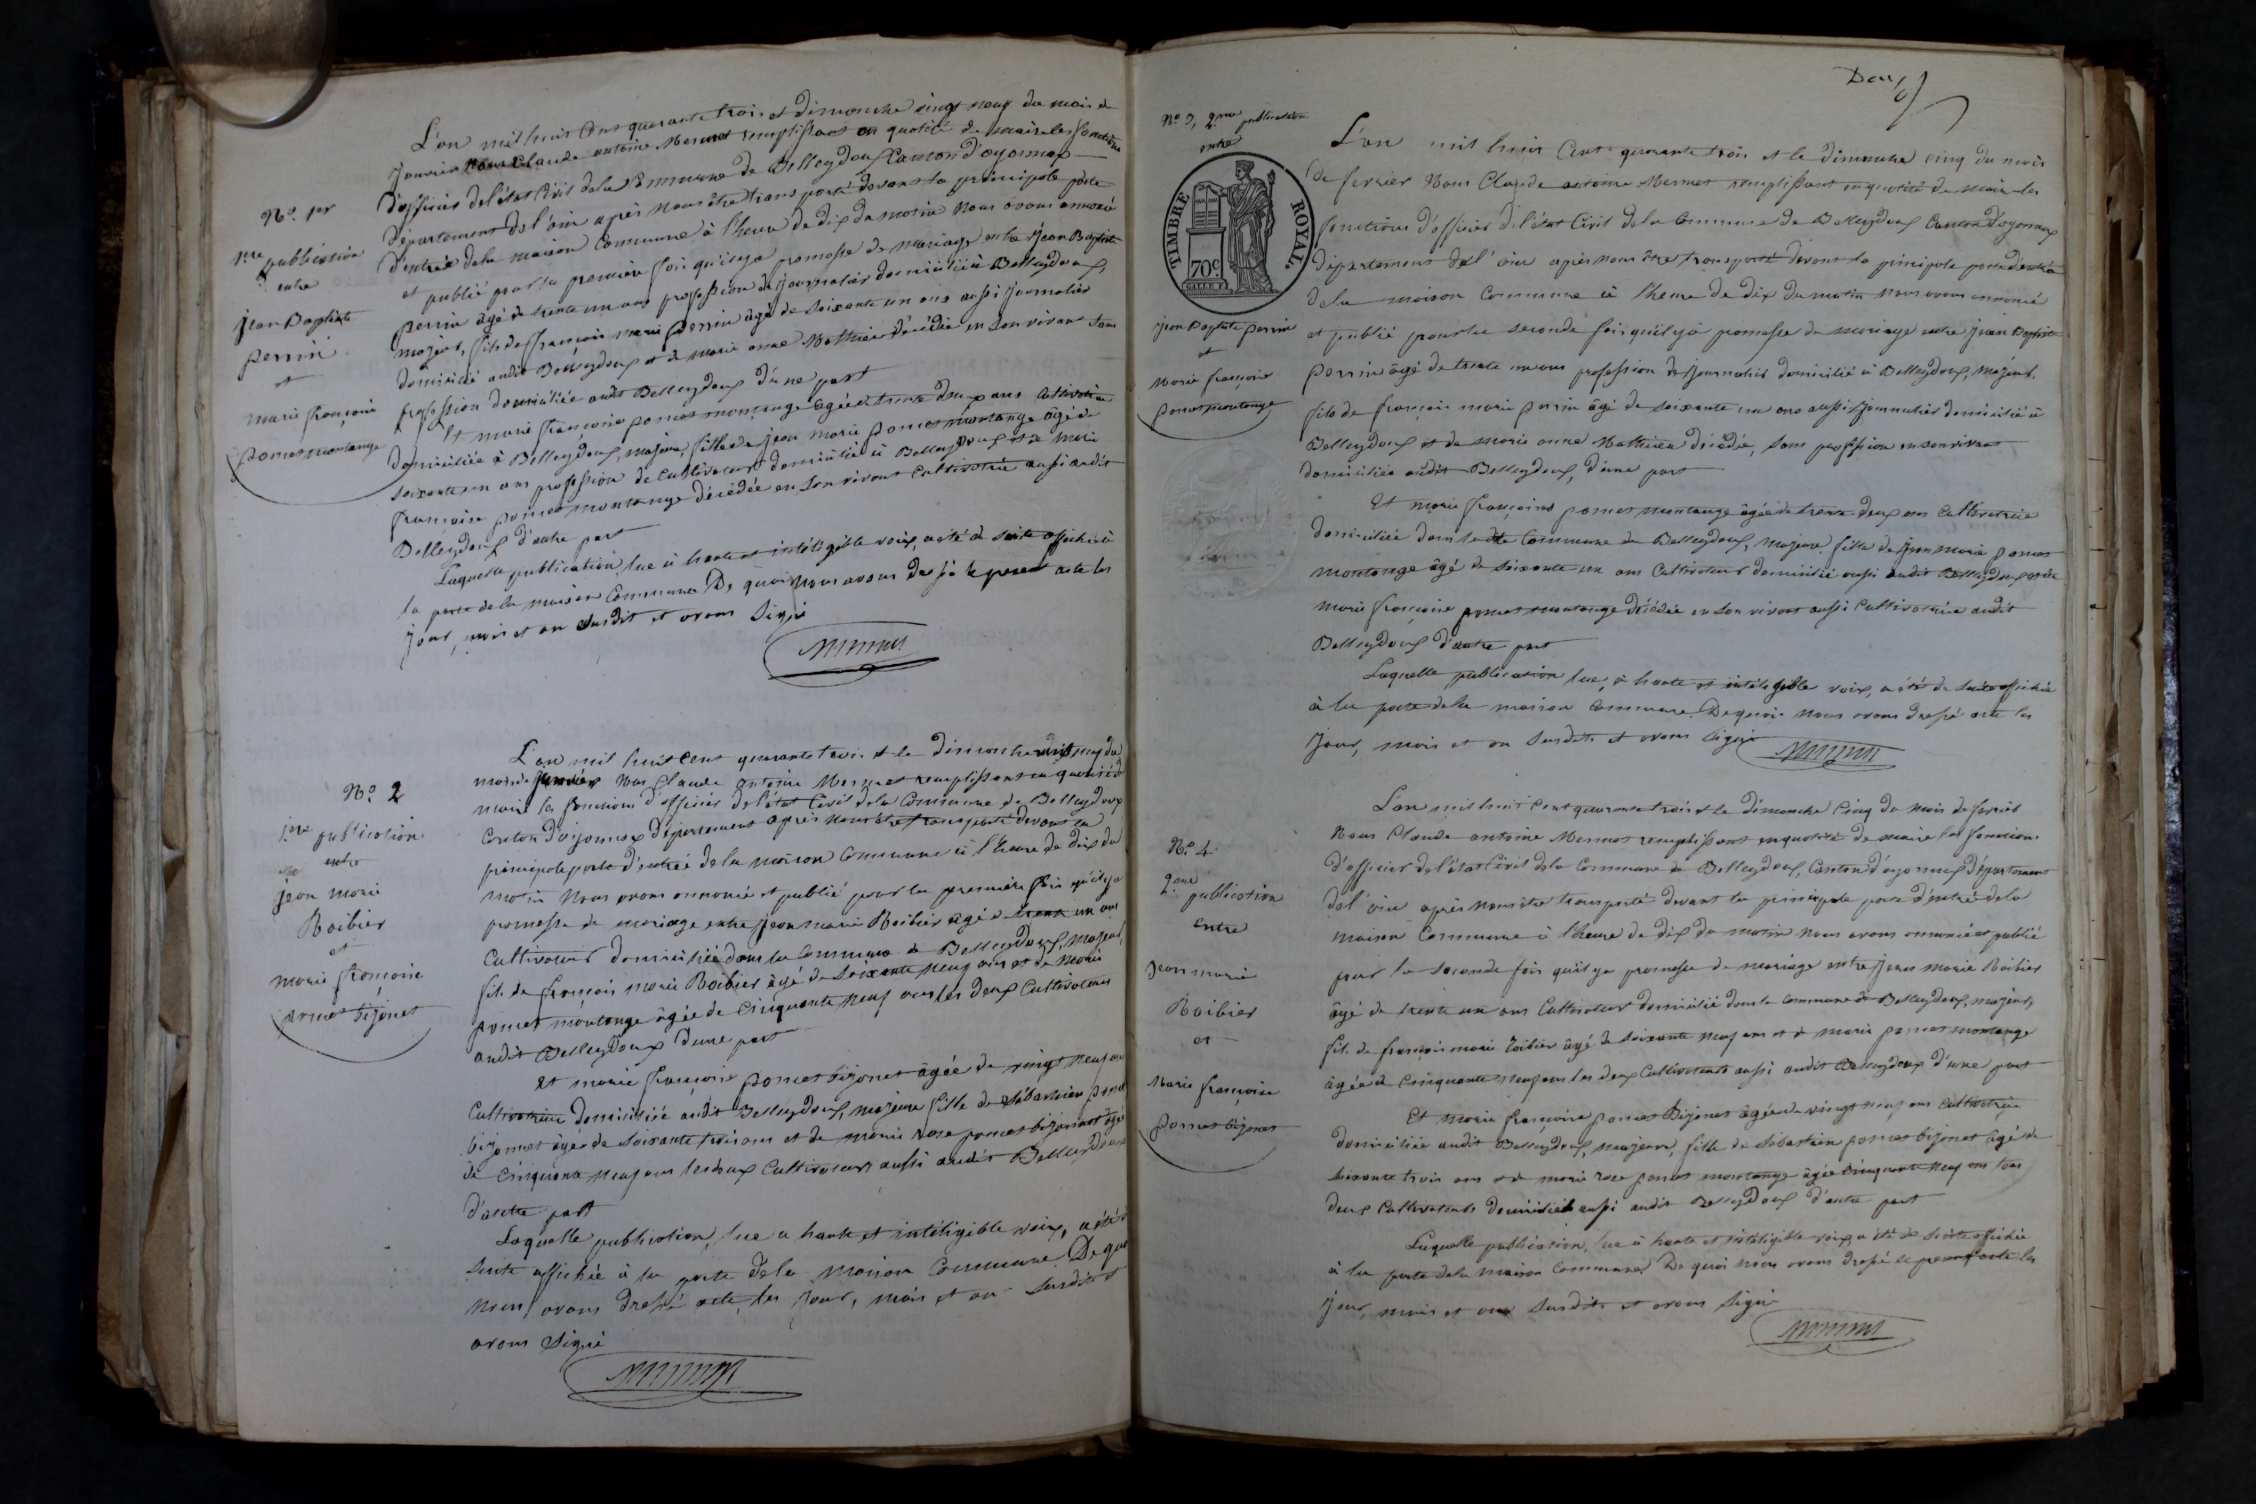 L'an mil huit Cent quarante trois et dimanche vingt neuf du mois de
Janvier Nous Claude antoine Mermet remplissant en qualité de maire les fonctions
d'officier de l'état Civil de la Commune de Belleydoux Canton d'oyonnax
département de l'ain après nous être transporté devant la principale porte
d'entrée de la maison Commune à l'heure de dix du matin Nous avons annoncé
et publié pour la première fois qu'il y a promesse de mariage entre Jean Baptiste
perrin âgé de trente un ans profession de Journalier domicilié à Belleydoux,
majeur, fils de françois marie perrin âgé de soixante un ans aussi Journalier
domicilié audit Belleydoux et de marie anne Mathieu décédée en son vivant sans
profession domiciliée audit Belleydoux d'une part
Et marie françoise poncet montange agée de trente deux ans Cultivatrice
domiciliée à Belleydoux, majeure, fille de jean marie poncet montange âgé de
soixante un ans profession de Cultivateur domicilié à Belleydoux et de marie
françoise poncet montange décédée en son vivant Cultivatrice aussi audit
Belleydoux d'autre part
Laquelle publication lue à haute et intéligible voix, a été de suite affichée à
la porte de la maison Commune De quoi nous avons dressé le present acte les
jour, mois et an susdit et avons signé
Mermet
No. 1er
1ère publication
entre
jean Baptiste
perrin
et
marie françoise
poncet montange
L'an mil huit cent quarante trois et le dimanche vingt neuf du
mois de Janvier Nous Claude antoine Mermet remplissant en qualité de
maire les fonctions d'officier de l'état Civil de la Commune de Belleydoux
Canton d'oyonnax département après nous être transporté devant la
principale porte d'entrée de la maison Commune à l'heure de dix du
matin Nous avons annoncé et publié pour la première fois qu'il y a
promesse de mariage entre jean marie Roibier âgé de trente un ans
Cultivateur domicilié dans la commune de Belleydoux, majeur,
fils de françois marie Roibier âgé de soixante neuf ans et de Marie
poncet montange âgée de Cinquante neuf ans les deux Cultivateurs
audit Belleydoux d'une part
Et marie françoise poncet bijonet âgée de vingt neuf ans
Cultivatrice domiciliée audit Belleydoux, majeure fille de Sébastien poncet
bijonnet âgé de soixante trois ans et de marie rose poncet bijonnet âgée
de Cinquante neuf ans les deux Cultivateurs aussi audit Belleydoux
d'autre part
Laquelle publication, lue a haute et intéligible voix, a été de
suite affichée à la porte de la maison Commune De quoi
nous avons dressé acte les jour, mois, et an susdits et
avons signé
Mermet
No. 2
1ère publication
entre
jean marie
Roibier
et
marie françoise
poncet bijonet
Deux
No. 3, 2me publication
entre
TIMBRE ROYAL.
70c
jean Baptiste perrin
et
Marie françoise
poncet montange
L'an mil huit Cent quarante trois et le dimanche cinq du mois
de fevrier Nous Claude antoine Mermet remplissant en qualité de maire les
fonctions d'officier de l'état Civil de la Commune de Belleydoux Canton d'oyonnax
département de l'ain après nous être transporté devant la principale porte d'entrée
de la maison Commune à l'heure de dix du matin nous avons annoncé
et publié pour la seconde fois qu'il y a promesse de mariage entre jean Baptiste
perrin âgé de trente un ans profession de Journalier domicilié à Belleydoux, majeur,
fils de françois marie perrin âgé de soixante un ans aussi Journalier domicilié à
Belleydoux et de marie anne Mathieu décédée, sans profession en son vivant
domiciliée audit Belleydoux, d'une part
Et marie françoise poncet montange âgée de trente deux ans Cultivatrice
domiciliée dans la dte Commune de Belleydoux, Majeure fille de jean marie poncet
montange âgé de soixante un ans Cultivateur domicilié aussi audit Belleydoux et de
marie françoise poncet montange décédée en son vivant aussi Cultivatrice audit
Belleydoux d'autre part
Laquelle publication lue, à haute et intéligible voix, a été de suite affichée
à la porte de la maison Commune. De quoi nous avons dressé acte les
Jour, mois et an susdits et avons signé
Mermet
L'an mil huit cent quarante trois et le dimanche Cinq du mois de fevrier
Nous Claude antoine Mermet remplissant en qualité de maire les fonctions
d'officier de l'état Civil de la Commune de Belleydoux, Canton d'oyonnax département
de l'ain après nous être transporté devant la principale porte d'entrée de la
maison Commune à l'heure de dix du matin nous avons annoncé et publié
pour la seconde fois qu'il y a promesse de mariage entre jean marie Roibier
âgé de trente un ans Cultivateur domicilié dans la commune de Belleydoux, majeur,
fils de françois marie roibier âgé de soixante neuf ans et de marie poncet montange
âgée de Cinquante neuf ans les deux Cultivateurs aussi audit Belleydoux d'une part
Et marie françoise poncet Bijonet âgée de vingt neuf ans Cultivatrice
domiciliée audit Belleydoux, majeure, fille de Sébastien poncet bijonet âgé de
soixante trois ans et de marie rose poncet montange âgée Cinquante neuf ans tous
deux Cultivateurs domiciliés aussi audit Belleydoux d'autre part
Laquelle publication, lue à haute et intéligible voix, a été de suite affichée
à la porte de la maison Commune. De quoi nous avons dressé le present acte les
Jour, mois et an susdits et avons signé
Mermet
No. 4
2ème publication
entre
Jean marie
Roibier
et
Marie françoise
poncet bijonet